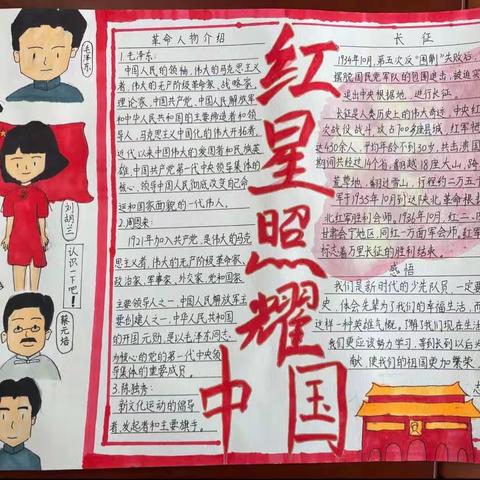 红星照耀中国
毛泽东
刘胡兰
认识一下吧！
蔡元培
革命人物介绍
1.毛泽东：
中国人民的领袖，伟大的马克思主义
者，伟大的无产阶级革命家、战略家、
理论家，中国共产党、中国人民解放军
和中华人民共和国的主要缔造者和领
导人，马克思主义中国化的伟大开拓者，
近代以来中国伟大的爱国者和民族英
雄，中国共产党第一代中央领导集体的
核心，领导中国人民彻底改变自己命
运和国家面貌的一代伟人。
2.周恩来：
1921年加入共产党，是伟大的马克
思主义者，伟大的无产阶级革命家、
政治家、军事家、外交家，党和国家
主要领导人之一，中国人民解放军主
要创建人之一，中华人民共和国
的开国元勋，是以毛泽东同志
为核心的党的第一代中央领
导集体的重要成员。
3.陈独秀：
新文化运动的倡导
者，发起者和主要旗手。
长征
1934年10月，第五次反“围剿”失败后，
摆脱国民党军队的包围追击，被迫实
退出中央根据地，进行长征。
长征是人类历史上的伟大奇迹，中央红
次战役战斗，攻占700多座县城，红军牺
达430余人，平均年龄不到30岁，共击溃国
期间共经过14个省，翻越18座大山，跨
荒草地，翻过雪山，行程约二万五千
军于1935年10月到达陕北革命根据
北红军胜利会师。1936年10月，红二、四
甘肃会宁地区，同红一方面军会师。红军
标志着万里长征的胜利结束。
感悟
我们是新时代的少先队员，一定要
史，体会先辈为了我们的幸福生活，而
这样一种英雄气概。了解我们现在生活
我们更应该努力学习，等到长到以后为
献，使我们的祖国更加繁荣
志